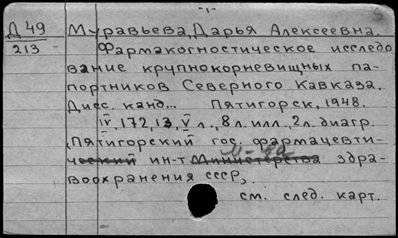 -1-
Д 49
213
Муравьева, Дарья Алексеевна.
Фармакогностическое исследо
вание крупнокорневищных па-
портников Северного Кавказа.
Дисс. канд... Пятигорск, 1948.
IV, 172, 13, V л., 8 л. илл., 2 л. диагр.
(Пятигорский гос. фармацевти-
ческий ин-т Министерства здра-
м-ва
воохранения СССР).
см. след. карт.